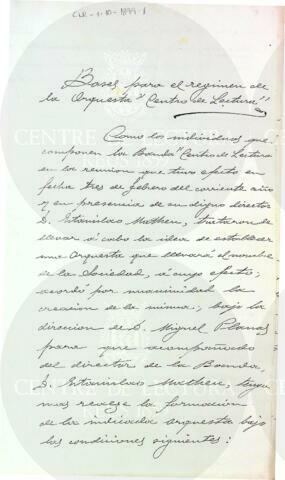 CLR-1-10-1899-1
Bases para el regimen de
la Orquesta "Centro de Lectura"
Como los individuos que
componen la Banda "Centro de Lectura"
en la reunion que tuvo efecto en
fecha tres de febrero del corriente año
y en presencia de su digno director
D. Estanislao Matheu, trataron de
llevar á cabo la idea de establecer
una Orquesta que llevará el nombre
de la Sociedad, á cuyo efecto,
acordó por unanimidad la
creacion de la misma, bajo la
direccion de D. Miguel Planas
para que acompañado
del director de la Banda,
D. Estanislao Matheu,
la formacion
de la indicada orquesta bajo
las condiciones siguientes:
CENTRE DE LECTURA
REUS 1859
CENTRE DE LECTURA